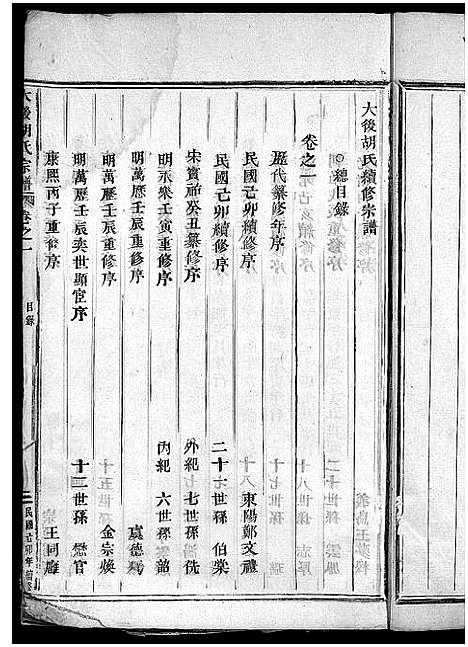 大後胡氏續修宗譜
○總目錄
卷之一
歷代纂修年序
民國己卯續修序 東陽鄭文禮
民國己卯續修序 二十七世孫 伯棠
宋寶祐癸丑纂修序 外紀七世孫 侁
明永樂壬辰重修序 內紀六世孫 韶
明萬歷壬辰重修序 虞德燁
明萬歷壬辰重修序 金宗煥
明萬歷壬辰奕世顯宦序 十二世孫 懋官
康熙丙子重修序 王同廱
大後胡氏宗譜 卷之一 目錄 二 民國己卯年續修